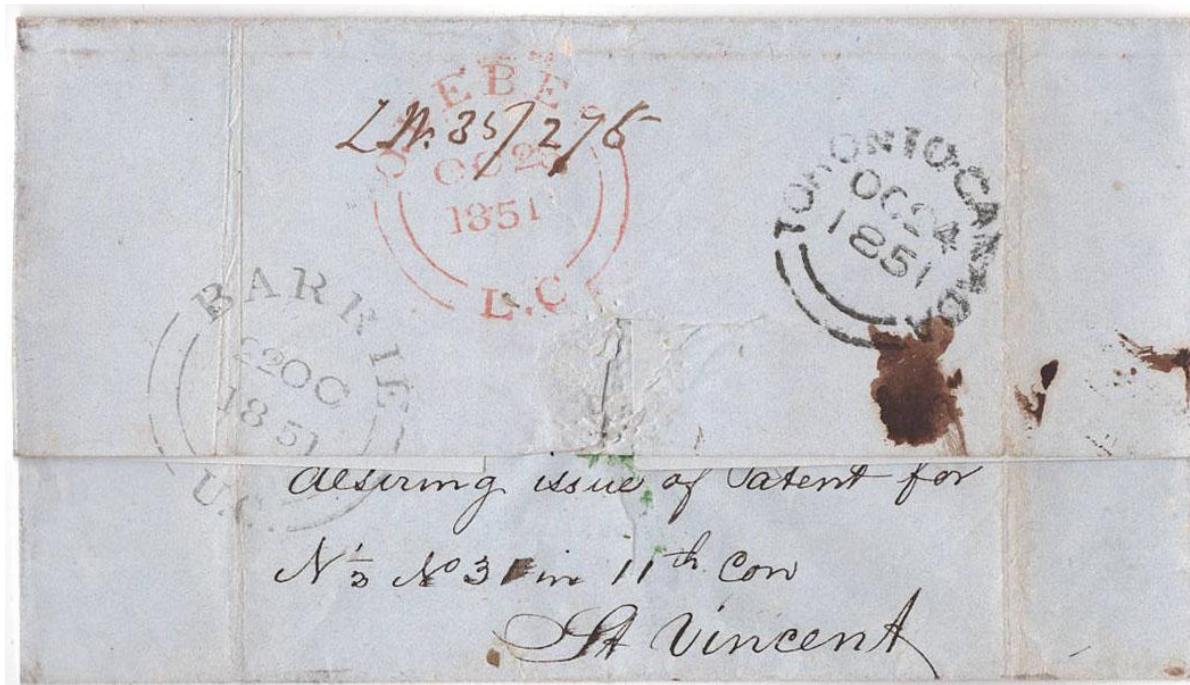 QUEBEC
OC 2
1851
L.C
35/276
TORONTO.CANADA
OC 24
1851
BARRIE
22 OC
1851
U.C.
desiring issue of Patent for
N ½ No 31 in 11th Con
St Vincent